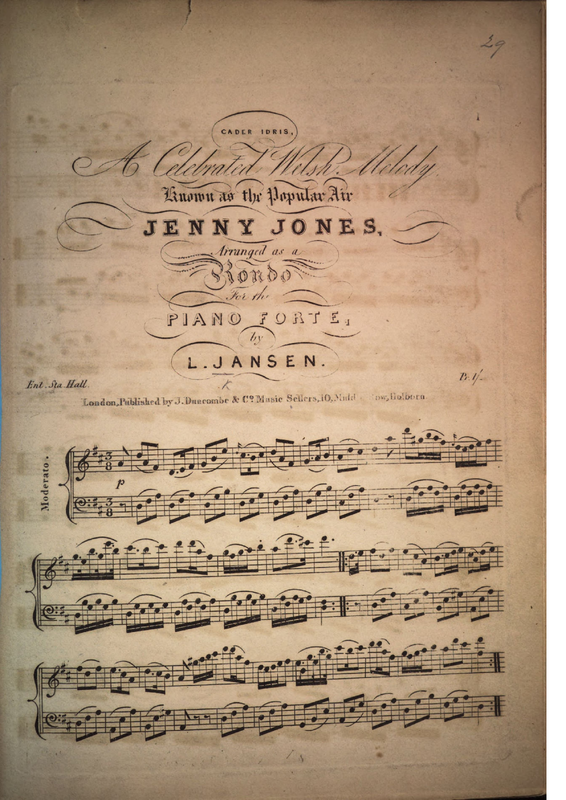 29
CADER IDRIS,
A Celebrated Welsh Melody
Known as the Popular Air
JENNY JONES,
Arranged as a
Rondo
For the
PIANO FORTE,
by
L. JANSEN.
Ent. Sta. Hall.
Pr. 1/
London, Published by J. Duncombe & Co. Music Sellers, 10, Holborn
Moderato.
3 8
p
3 8